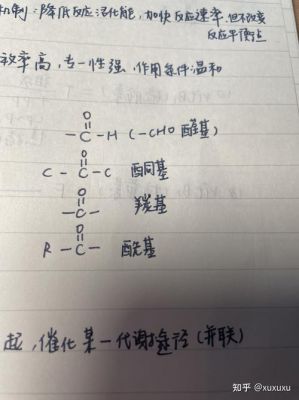 机制：降低反应活化能，加快反应速率，但不改变
反应平衡点
效率高，专一性强，作用条件温和
O
-C-H (-CHO 醛基)
O
C-C-C 酮基
O
-C- 羰基
O
R-C- 酰基
起，催化某一代谢途径(并联)
知乎 @xuxuxu